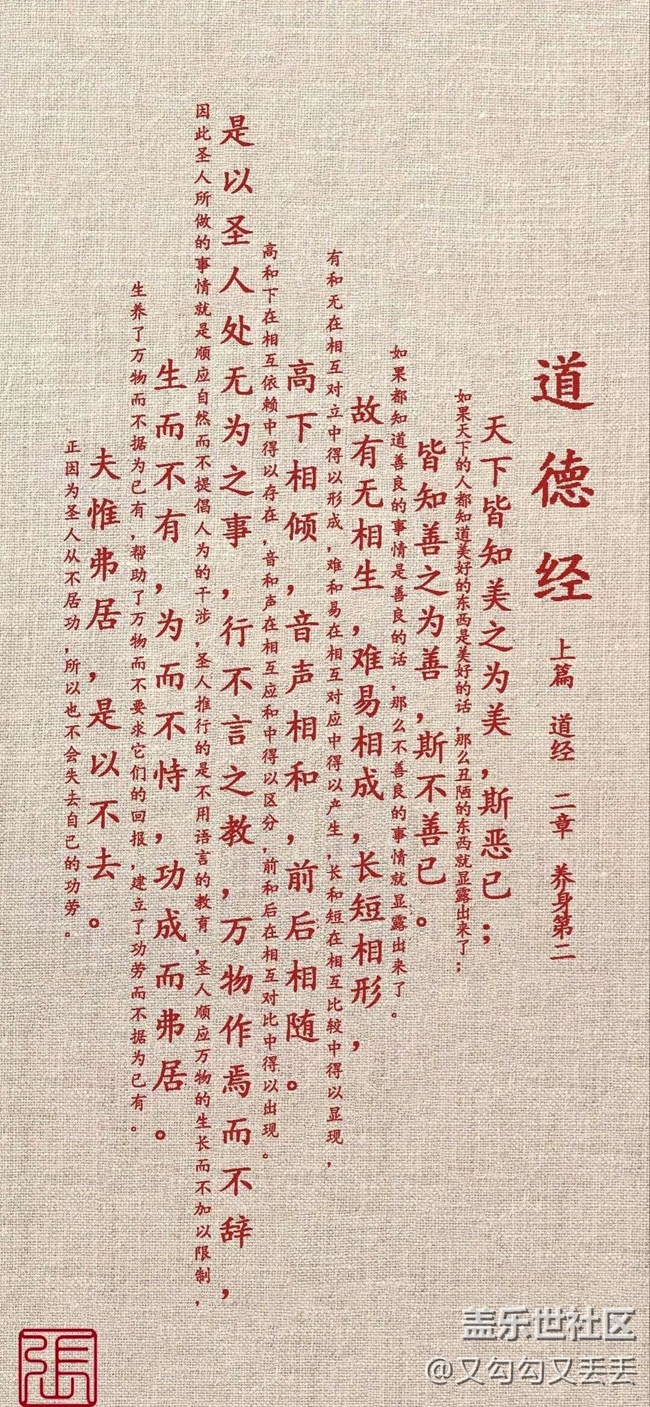 道德经 上篇 道经 二章 养身第二
天下皆知美之为美，斯恶已；
如果天下的人都知道美好的东西是美好的话，那么丑陋的东西就显露出来了；
皆知善之为善，斯不善已。
如果都知道善良的事情是善良的话，那么不善良的事情就显露出来了。
故有无相生，难易相成，长短相形，
有和无在相互对立中得以形成，难和易在相互对应中得以产生，长和短在相互比较中得以显现，
高下相倾，音声相和，前后相随。
高和下在相互依赖中得以存在，音和声在相互应和中得以区分，前和后在相互对比中得以出现。
是以圣人处无为之事，行不言之教，万物作焉而不辞，
因此圣人所做的事情就是顺应自然而不提倡人为的干涉，圣人推行的是不用语言的教育，圣人顺应万物的生长而不加以限制，
生而不有，为而不恃，功成而弗居。
生养了万物而不据为已有，帮助了万物而不要求它们的回报，建立了功劳而不据为已有。
夫惟弗居，是以不去。
正因为圣人从不居功，所以也不会失去自己的功劳。
張
盖乐世社区
@又勾勾又丢丢